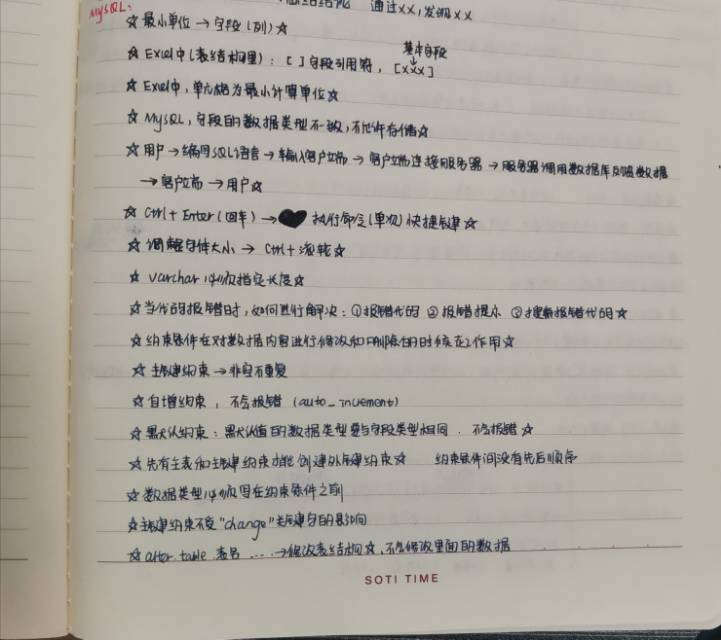 通过xx，发现xx
MySQL：
☆ 最小单位 → 字段（列）☆
基本字段
☆ Excel中（表结构里）：[ ] 字段引用符，[xxx]
☆ Excel中，单元格为最小计算单位☆
☆ MySQL，字段的数据类型不一致，不允许存储☆
☆ 用户 → 编写SQL语言 → 输入客户端 → 客户端连接服务器 → 服务器调用数据库反馈数据
→ 客户端 → 用户☆
☆ Ctrl + Enter（回车）→ 执行命令（单观）快捷键☆
☆ 调整字体大小 → Ctrl + 滚轮☆
☆ varchar 必须指定长度☆
☆ 当代码报错时，如何进行解决：① 报错代码 ② 报错提示 ③ 搜索报错代码☆
☆ 约束条件在对数据内容进行修改和删除的时候在工作用☆
☆ 主键约束 → 非空不重复
☆ 自增约束，不会报错（auto_increment）
☆ 默认约束：默认值的数据类型要与字段类型相同，不会报错☆
☆ 先有主表和主键约束才能创建外键约束☆ 约束条件间没有先后顺序
☆ 数据类型必须写在约束条件之前
☆ 主键约束不受“change”关键字的影响
☆ alter table 表名 .... → 修改表结构☆，不会修改里面的数据
SOTI TIME